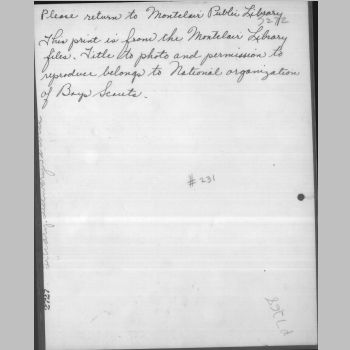 Please return to Montclair Public Library
This print is from the Montclair Library
files. Title to photo and permission to
reproduce belongs to National organization
of Boys Scouts.
# 231
2727